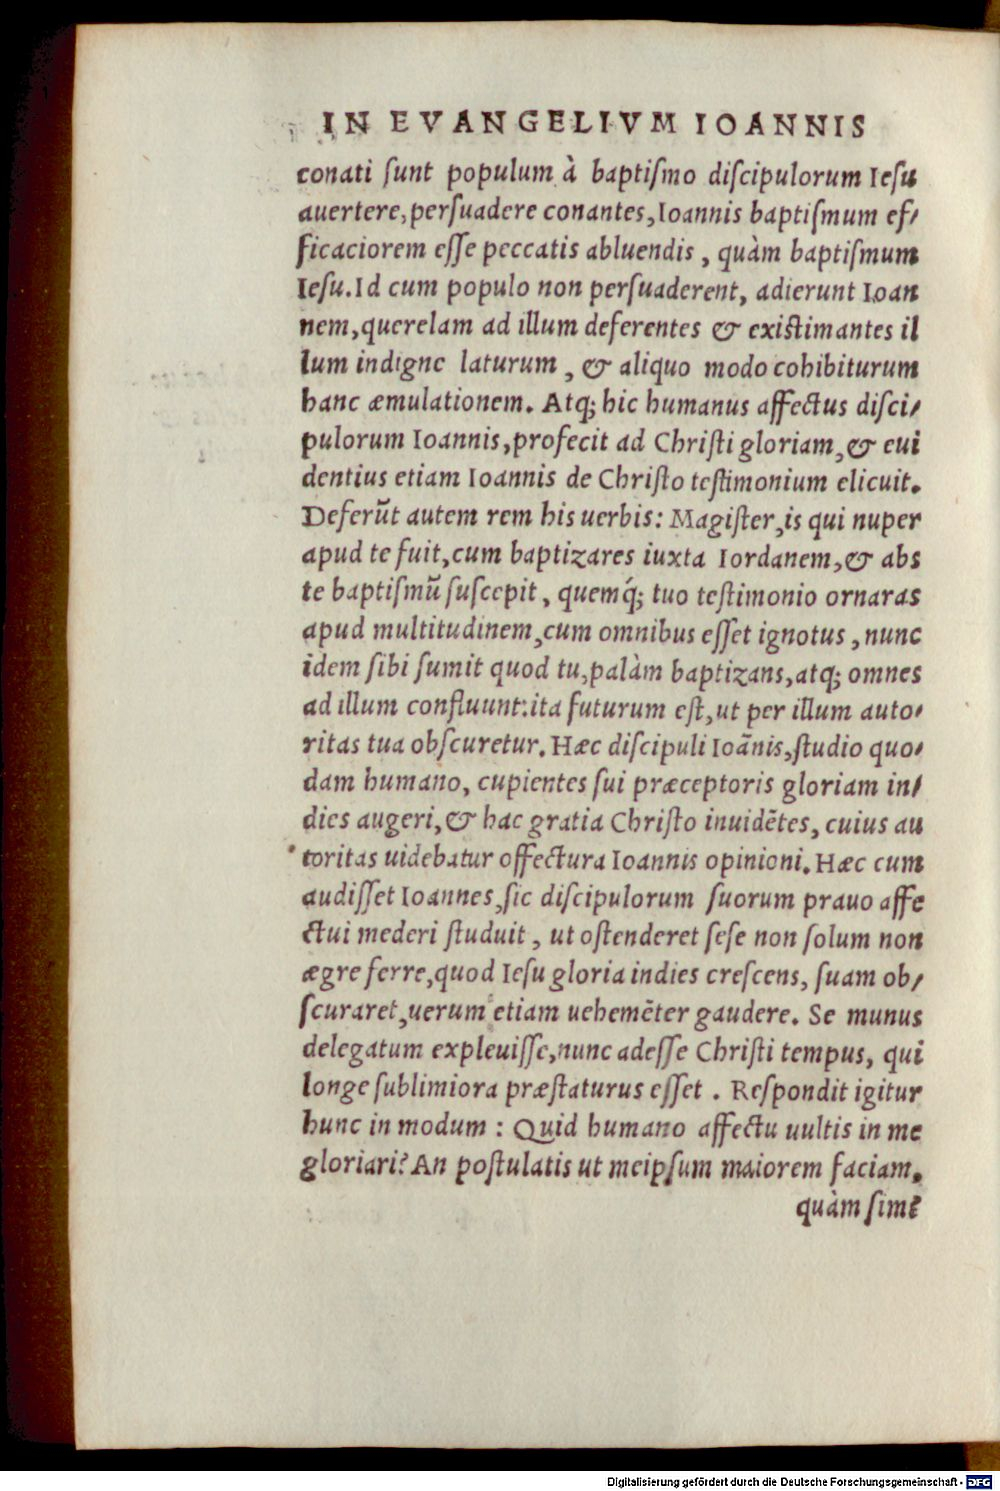 IN EVANGELIVM IOANNIS
conati ſunt populum à baptiſmo diſcipulorum Ieſu
auertere, perſuadere conantes, Ioannis baptiſmum ef/
ficaciorem eſſe peccatis abluendis, quàm baptiſmum
Ieſu. Id cum populo non perſuaderent, adierunt Ioan
nem, querelam ad illum deferentes & exiſtimantes il
lum indigne laturum, & aliquo modo cohibiturum
hanc æmulationem. Atq; hic humanus affectus diſci/
pulorum Ioannis, profecit ad Chriſti gloriam, & eui
dentius etiam Ioannis de Chriſto teſtimonium elicuit.
Deferūt autem rem his uerbis: Magiſter, is qui nuper
apud te fuit, cum baptizares iuxta Iordanem, & abs
te baptiſmū ſuſcepit, quemq́; tuo teſtimonio ornaras
apud multitudinem, cum omnibus eſſet ignotus, nunc
idem ſibi ſumit quod tu, palàm baptizans, atq; omnes
ad illum confluunt: ita futurum eſt, ut per illum auto/
ritas tua obſcuretur. Hæc diſcipuli Ioānis, ſtudio quo/
dam humano, cupientes ſui præceptoris gloriam in/
dies augeri, & hac gratia Chriſto inuidētes, cuius au
toritas uidebatur offectura Ioannis opinioni. Hæc cum
audiſſet Ioannes, ſic diſcipulorum ſuorum prauo affe
ctui mederi ſtuduit, ut oſtenderet ſeſe non ſolum non
ægre ferre, quod Ieſu gloria indies creſcens, ſuam ob/
ſcuraret, uerum etiam uehemēter gaudere. Se munus
delegatum expleuiſſe, nunc adeſſe Chriſti tempus, qui
longe ſublimiora præſtaturus eſſet. Reſpondit igitur
hunc in modum: Quid humano affectu uultis in me
gloriari? An poſtulatis ut meipſum maiorem faciam,
quàm ſim?
Digitalisierung gefördert durch die Deutsche Forschungsgemeinschaft - DFG